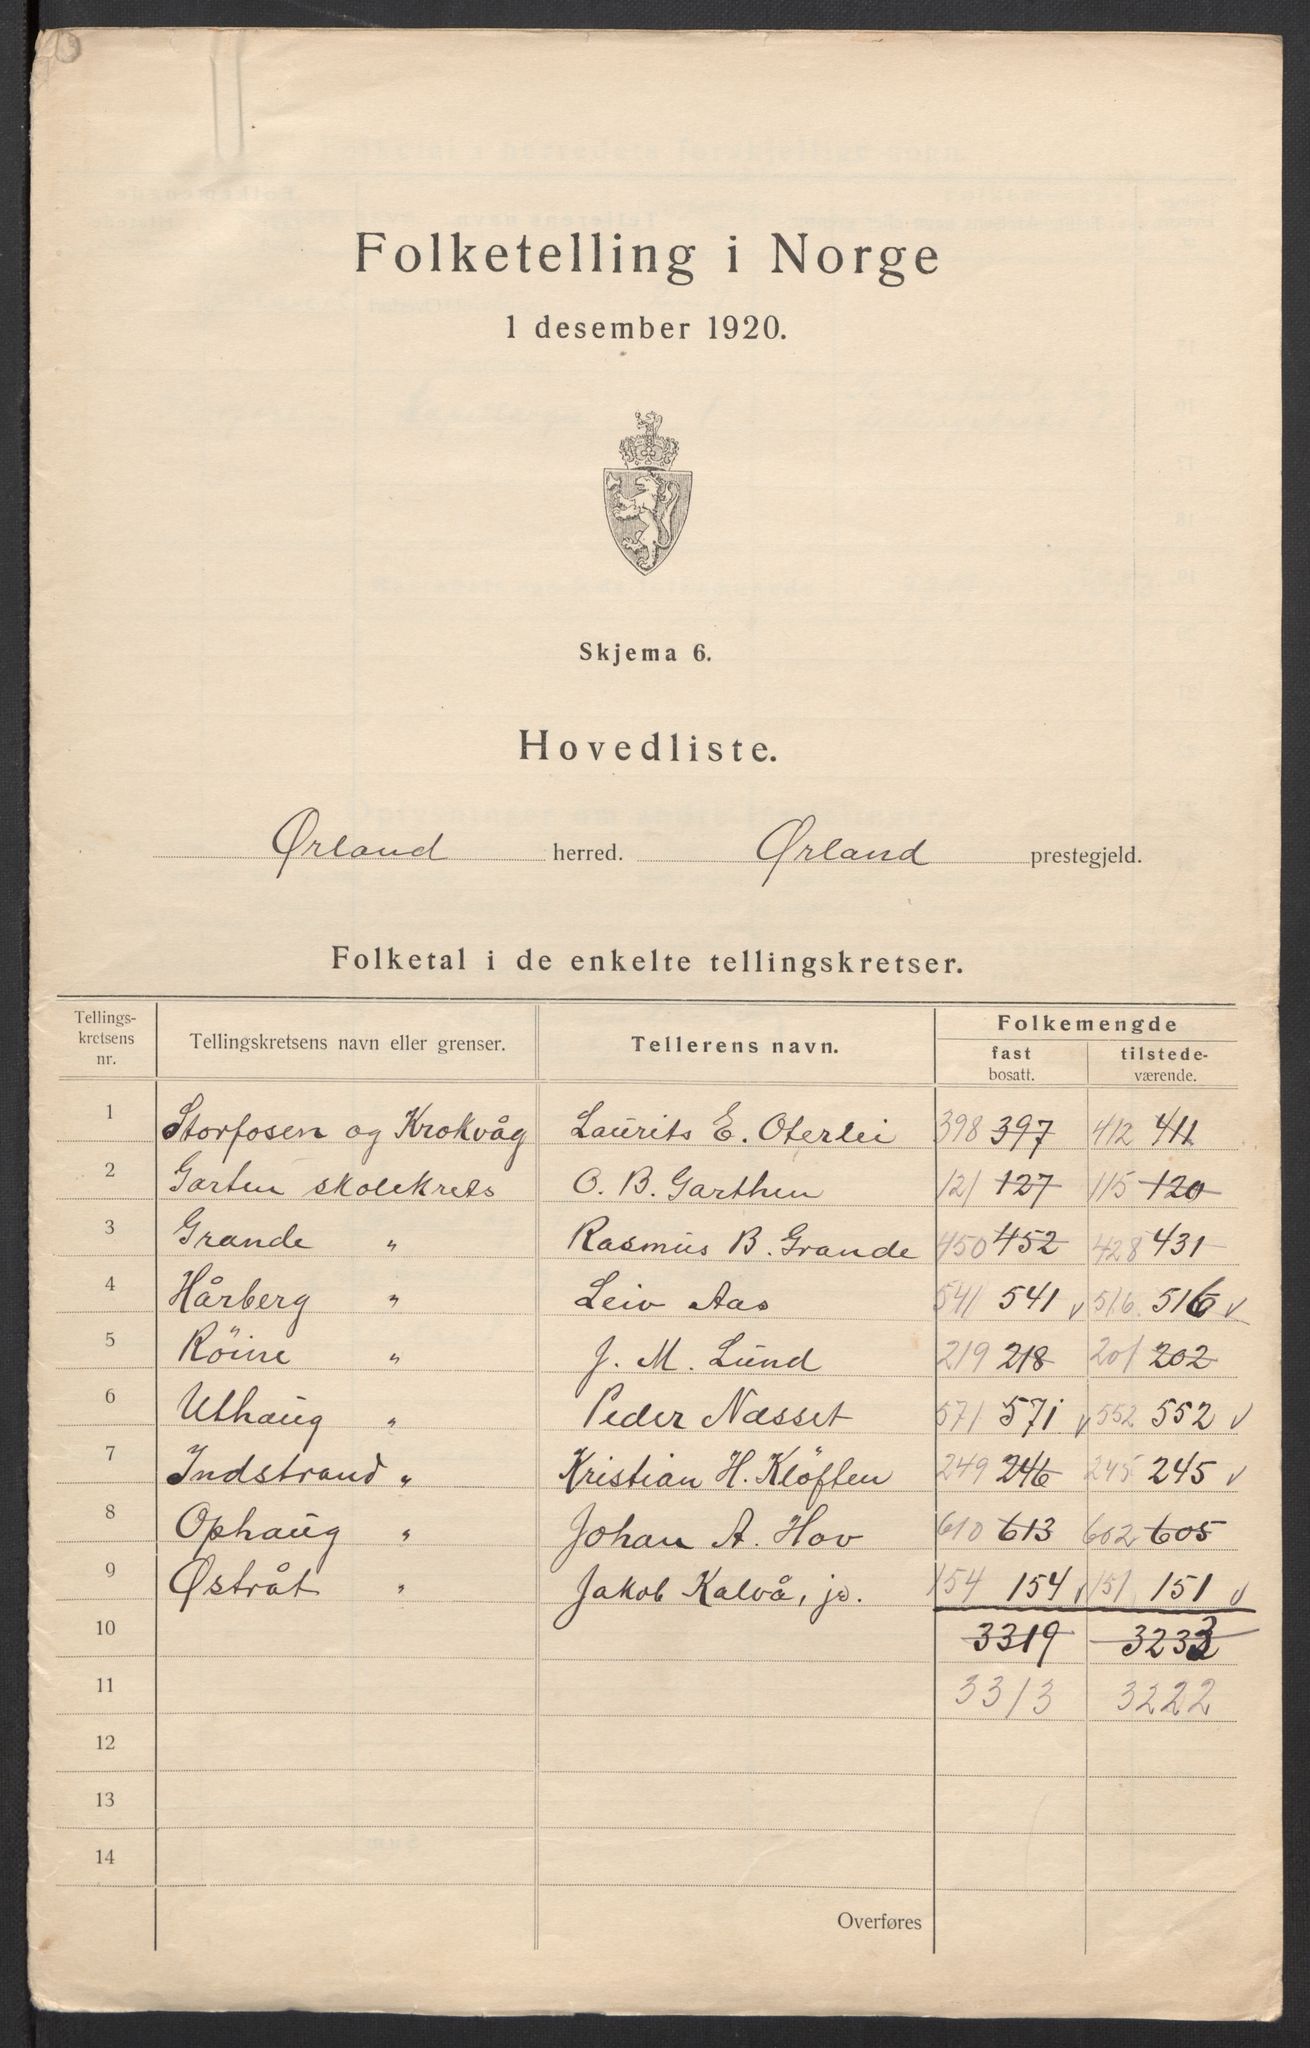 Folketelling i Norge
1 desember 1920.
Skjema 6.
Hovedliste.
Ørland herred. Ørland prestegjeld.
Folketal i de enkelte tellingskretser.
Tellings-kretsens nr. Tellingskretsens navn eller grenser. Tellerens navn. Folkemengde fast bosatt. tilstede-værende.
1 Storfosen og Krokvåg Laurits E. Oterlei 398 397 412 411
2 Garten skolekrets O. B. Garthen 121 127 115 120
3 Grande " Rasmus B. Grande 450 452 428 431
4 Hårberg " Leiv Aas 541 541 v 516. 516 v
5 Röine " J. M. Lund 219 218 201 202
6 Uthaug " Peder Næsset 571 571 v 552 552 v
7 Indstrand " Kristian H. Klöften 249 246 245 245 v
8 Ophaug " Johan A. Hov 610 613 602 605
9 Østråt " Jakob Kalvå, jr. 154 154 v 151 151 v
10 3319 3233
11 3313 3222
12
13
14
Overføres